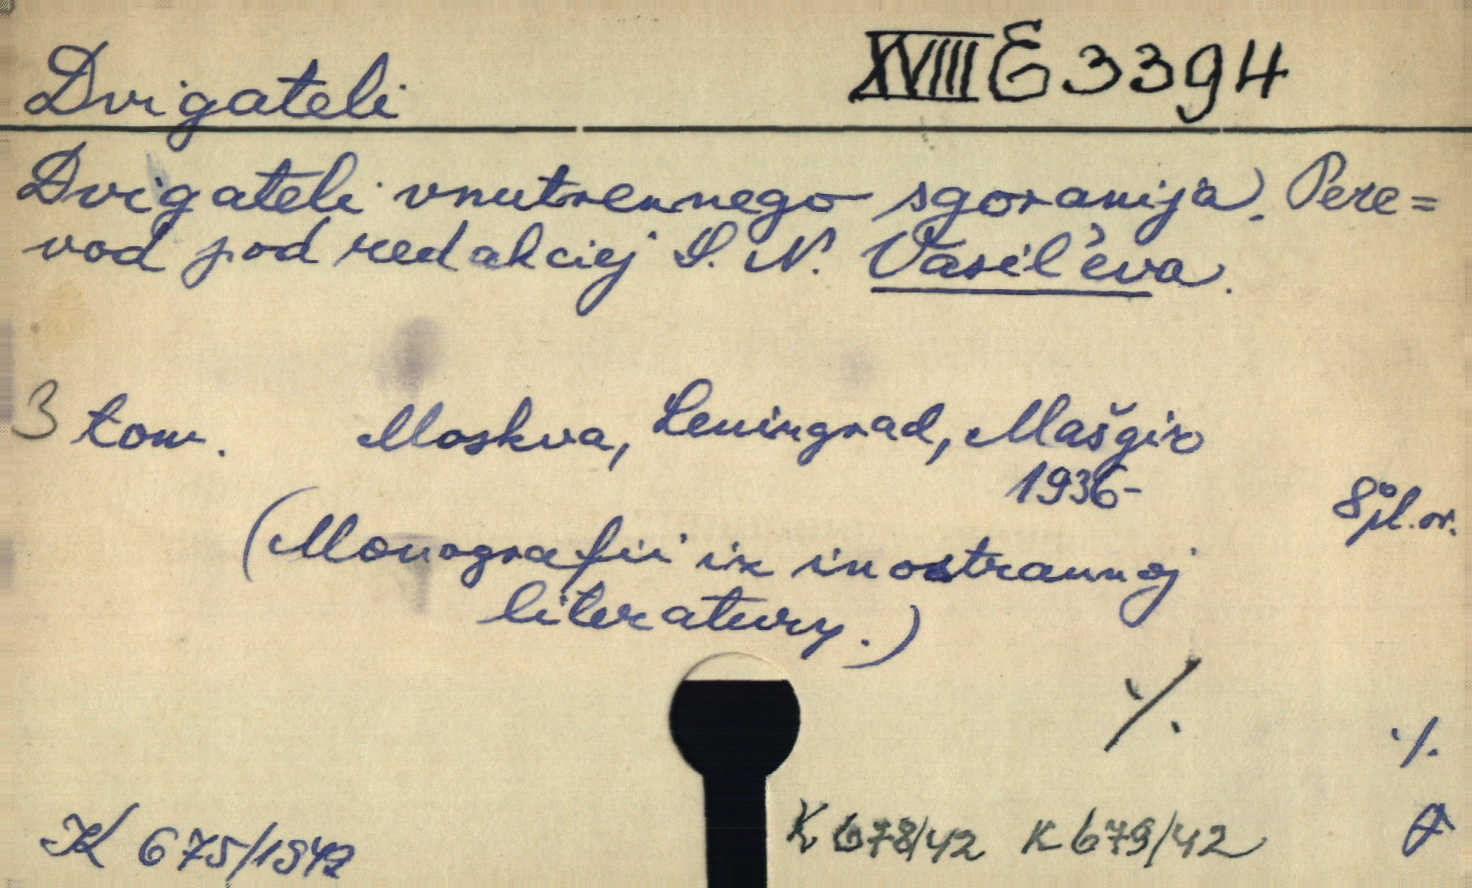 Dvigateli
XVIII E 3394
Dvigateli vnutrennego sgoranija. Pere=
vod pod redakciej S. N. Vasil'eva.
3 tom. Moskva, Leningrad, Mašgiz
1936-
8°
(Monografii iz inostrannoj
literatury.)
·/.
·/.
K 675/1942
K 678/42 K 679/42